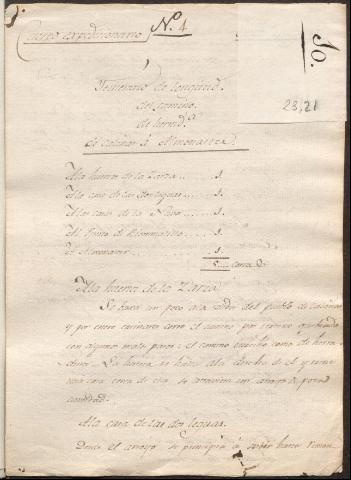 Cuerpo expedicionario
N.º 4
Jo.
23,21
Itinerario de longitud
del camino
de herrad.ª
de Calañas á Almonaster.
A la huerta de la Zarza ...... 1.
A la casa de las dos leguas ...... 1.
A las casas de la ...... 1.
Al ...... 1.
A Almonaster ...... 1.
5.....
A la huerta de la Zarza
Se baja un poco a la salida del pueblo de Calañas
y por entre corre el camino por terreno quebrado
con algunos malos pasos: el camino estrecho como de herra-
dura. La huerta se halla a la derecha de él y tiene
una casa cerca de ella se atraviesa un arroyo de poca
cantidad.
A la casa de las dos leguas.
Desde el arroyo se principia á subir hasta